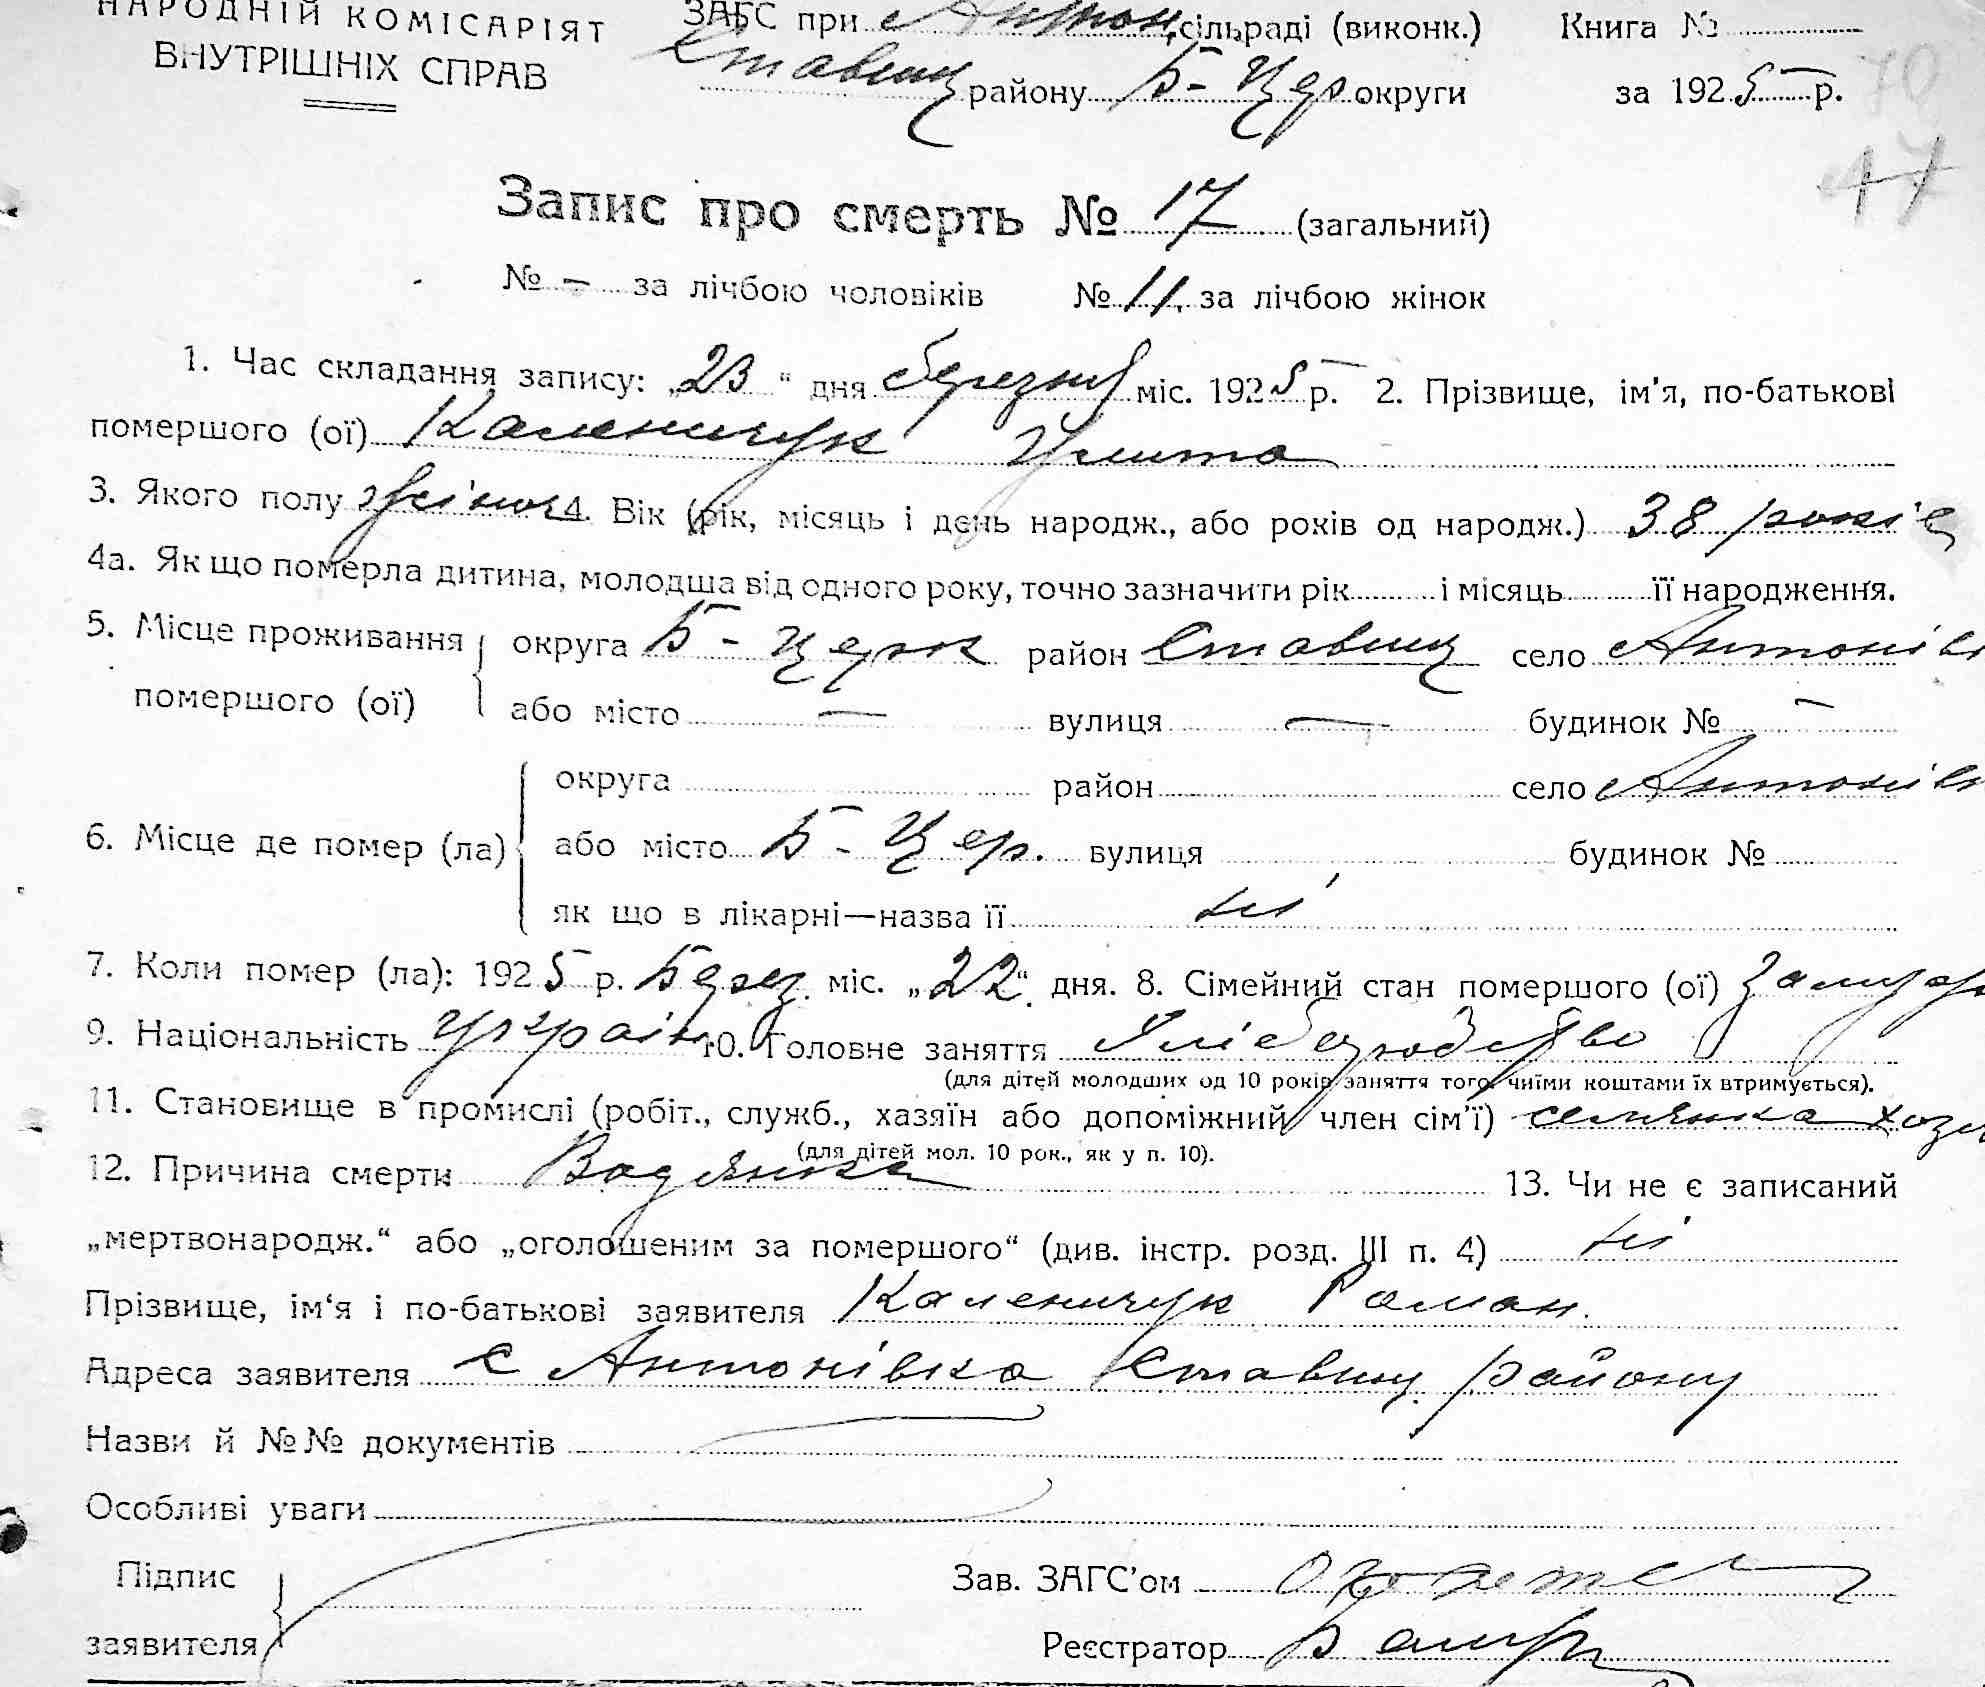 НАРОДНІЙ КОМІСАРІЯТ
ВНУТРІШНІХ СПРАВ
ЗАГС при Антон. сільраді (виконк.)
Ставищ району Б-Цер округи
Книга №
за 1925 р.
47
Запис про смерть № 17 (загальний)
№ – за лічбою чоловіків № 11 за лічбою жінок
1. Час складання запису: „23“ дня березня міс. 1925 р. 2. Прізвище, ім'я, по-батькові
помершого (ої) Каленичук Улита
3. Якого полу жіноч 4. Вік (рік, місяць і день народж., або років од народж.) 38 років
4а. Як що померла дитина, молодша від одного року, точно зазначити рік і місяць її народження.
5. Місце проживання округа Б-Церк район Ставищ село Антонівк
помершого (ої) або місто — вулиця — будинок № –
округа район село Антонівк
6. Місце де помер (ла) або місто Б-Цер. вулиця будинок №
як що в лікарні—назва її ні
7. Коли помер (ла): 1925 р. Берез. міс. „22“ дня. 8. Сімейний стан помершого (ої) Замуж
9. Національність україн 10. Головне заняття Хліборобство
(для дітей молодших од 10 років заняття того, чиїми коштами їх втримується).
11. Становище в промислі (робіт., служб., хазяїн або допоміжний член сім'ї) семянка хозя
(для дітей мол. 10 рок., як у п. 10).
12. Причина смерти Водянка 13. Чи не є записаний
„мертвонародж.“ або „оголошеним за помершого“ (див. інстр. розд. III п. 4) ні
Прізвище, ім'я і по-батькові заявителя Каленичук Роман.
Адреса заявителя с Антонівка Ставищ. району
Назви й №№ документів
Особливі уваги
Підпис
заявителя
Зав. ЗАГС'ом
Реєстратор